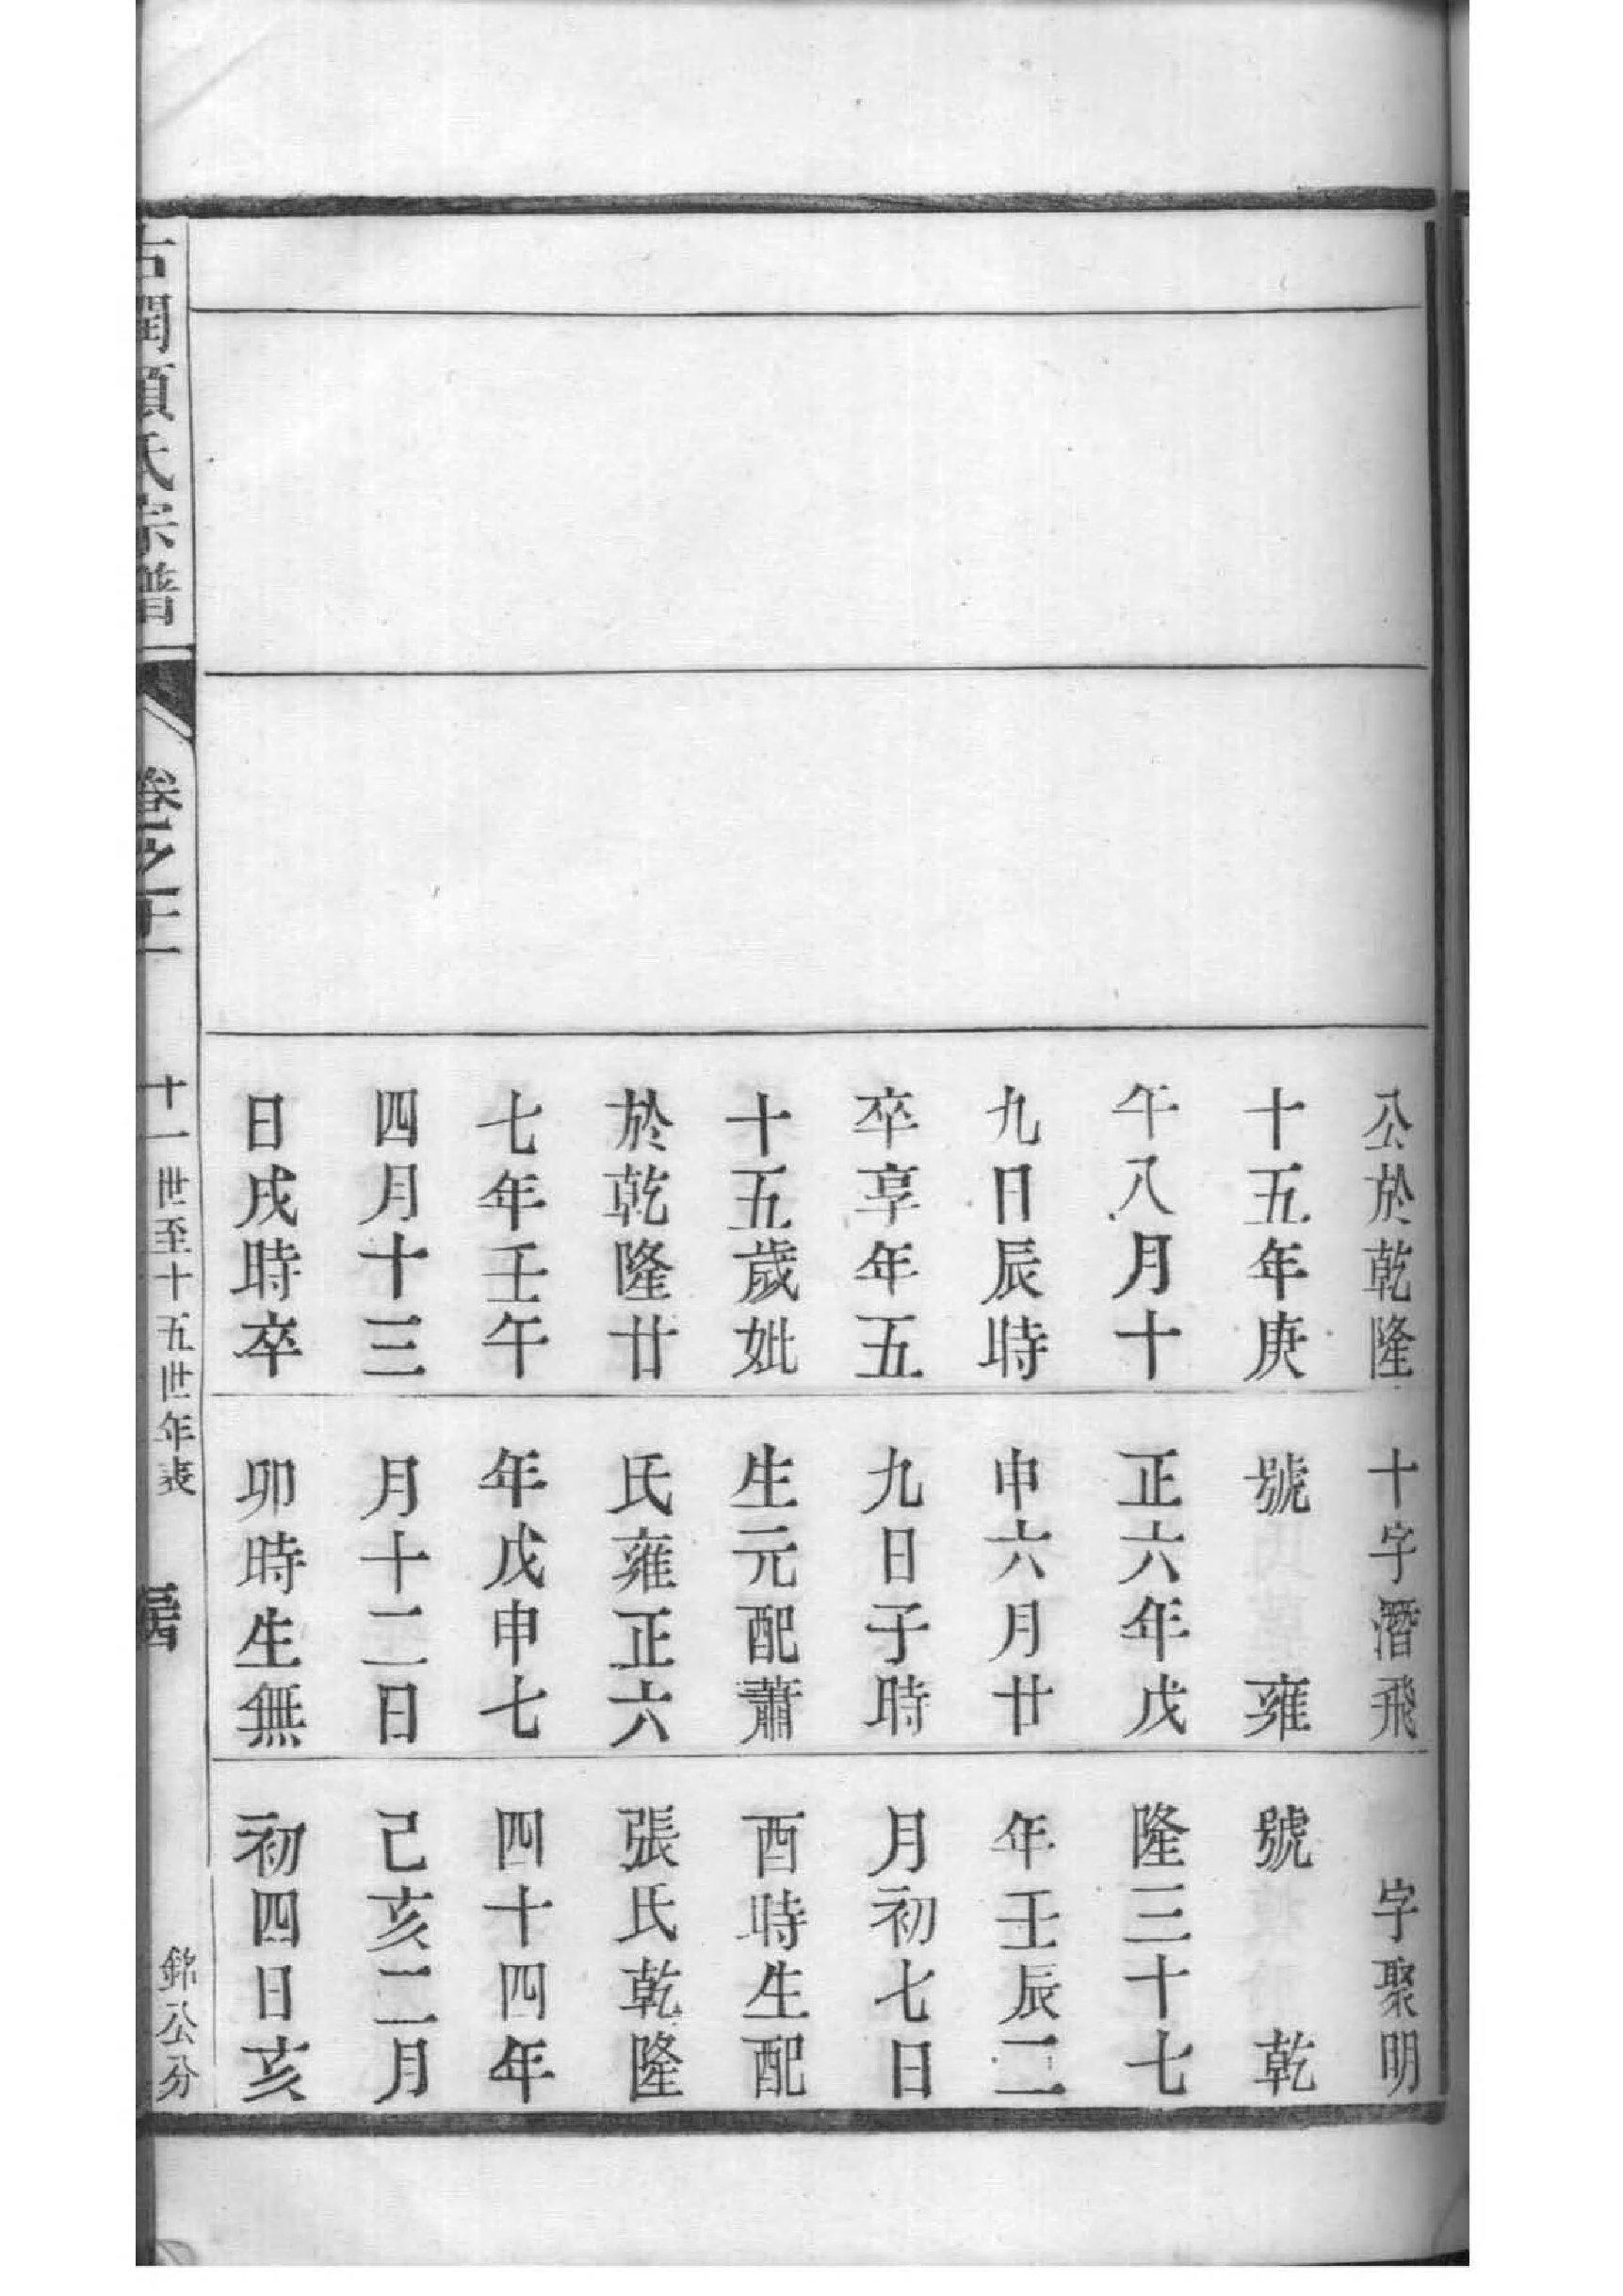 公於乾隆
十五年庚
午八月十
九日辰時
卒享年五
十五歲妣
於乾隆廿
七年壬午
四月十三
日戌時卒
十字潛飛
號　雍
正六年戊
申六月廿
九日子時
生元配蕭
氏雍正六
年戊申七
月十二日
卯時生無
字聚明
號　乾
隆三十七
年壬辰二
月初七日
酉時生配
張氏乾隆
四十四年
己亥二月
初四日亥
氏宗譜
卷之十一
十一世至十五世年表
錦公分